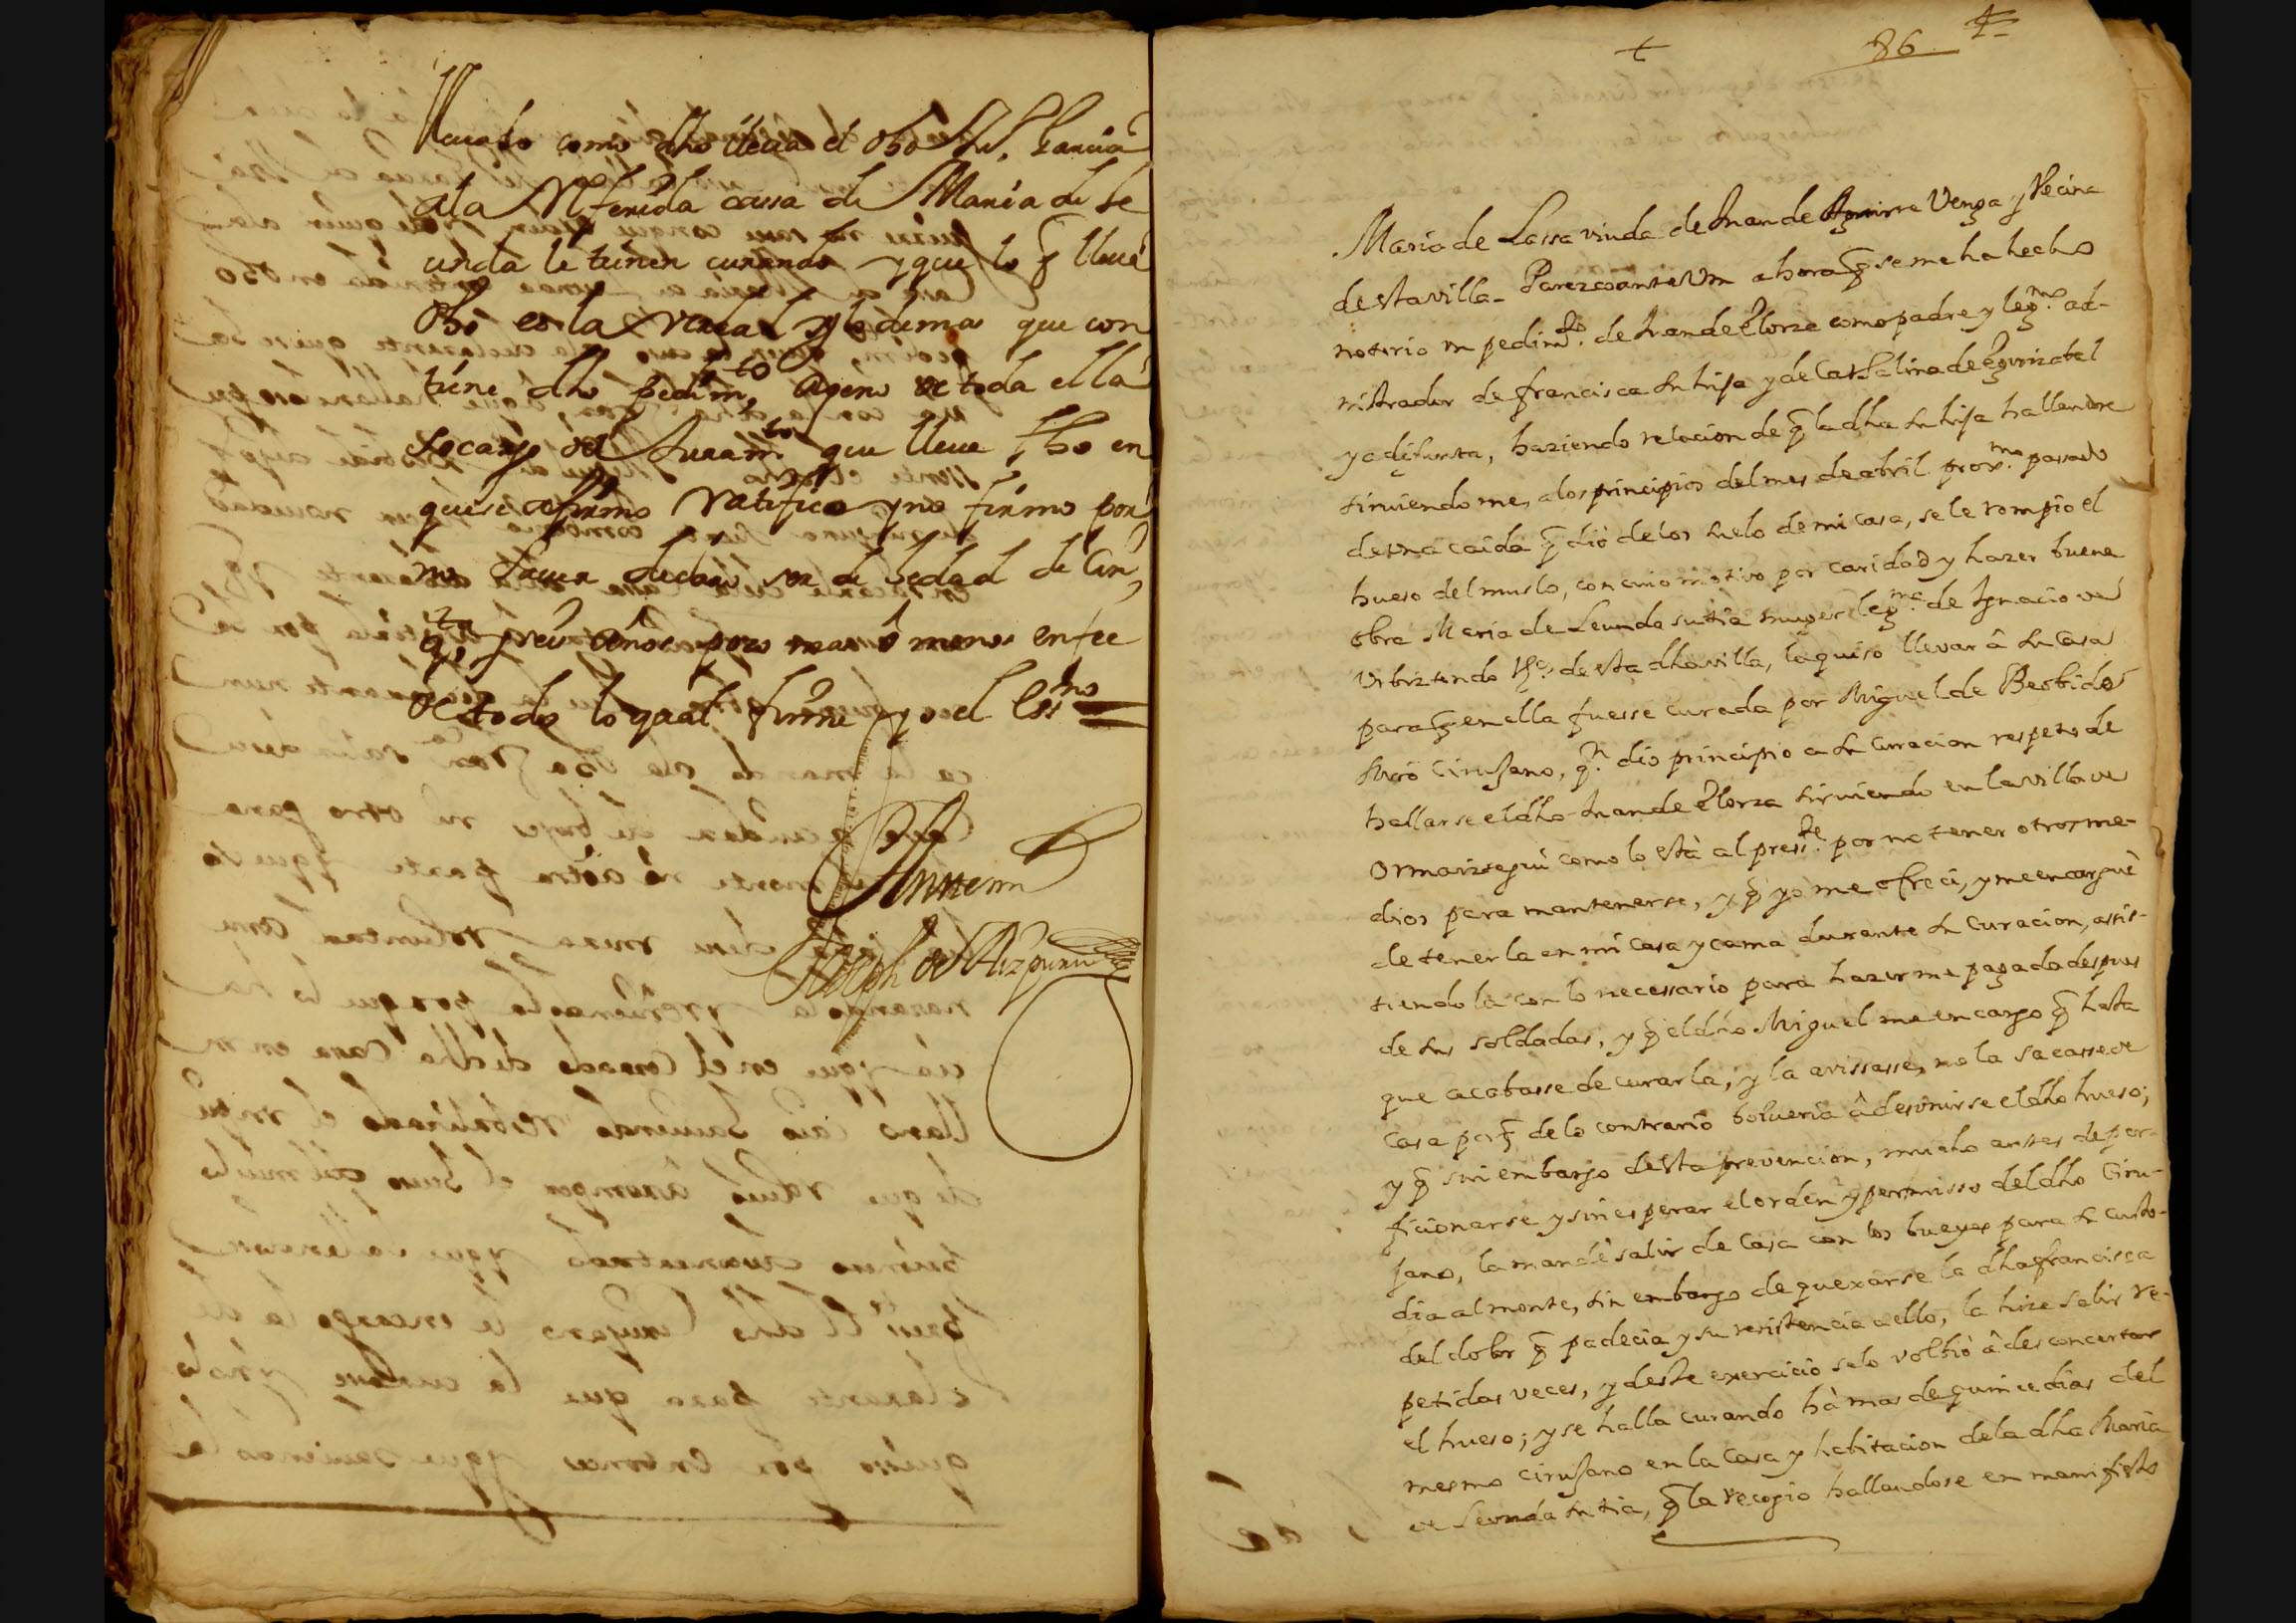 lleuado como dho lleua el dho Fran.ca
ala Referida cassa de Maria de Se
unda le tienen curando y que lo q̃ lleua
dho es la verdad y lo demas que con
tiene dho pedim.to ageno de toda ella
socargo del Juram.to que lleua fho en
que se afirmo Ratifico y no firmo por
no sauer declaro ser de hedad de Cin
q.ta y seis años poco mas ô menos en fee
de todo lo qual firme yo el Ess.no
Joseph de Aizpuru
+
86
Maria de Lassa viuda de Juan de Aguirre Venga y Vecina
desta villa_ Parezco ante Vm ahora q̃ se me ha hecho
notorio un pedim.to de Juan de Elorza como padre y leg.mo ad-
nistrador de francisca su hija y de Cathalina de Eguizabal
ya difunta, haziendo relacion de q̃ la dha su hija hallandose
siruiendo me, a los principios del mes de abril prox.mo passado
de una caida q̃ dió de los suelo de mi casa, se le rompio el
hueso del muslo, con cuio motivo por caridad y hazer buena
obra Maria de Leunda su tia muger leg.ma de Ignacio de
Urbiztondo Vz.o desta dha villa, la quiso llevar â su Casa
para q̃ en ella fuesse curada por Miguel de Beobide
Mro Cirujano, q.n dio principio a su curacion respeto de
hallarse el dho Juan de Elorza siruiendo en la villa de
Ormaiztegui como lo està al pres.te por no tener otros me-
dios para mantenerse, y q̃ yo me ofreci, y me encarguè
de tener la en mi casa y cama durante su curacion, assis-
tiendo la con lo necessario para hazerme pagada despues
de sus soldadas, y q̃ el dho Miguel me encargo q̃ hasta
que acabasse de curarla, y la avissasse, no la sacasse de
casa por q̃ de lo contrario bolueria â desunirse el dho hueso;
y q̃ sin embargo desta prevencion, mucho antes de per-
ficionarse y sin esperar el orden y permisso del dho Ciru-
jano, la mandè salir de Casa con los bueyes para su custo-
dia al monte, sin embargo de quexarse la dha francisca
del dolor q̃ padecia y su resistencia a ello, la hize salir re-
petidas veces, y deste exercicio selo voltiò â desconcertar
el hueso; y se halla curando hà mas de quince dias del
mesmo cirujano en la Casa y habitacion de la dha Maria
de Leunda su tia, q̃ la recogio hallandose en manifiesto